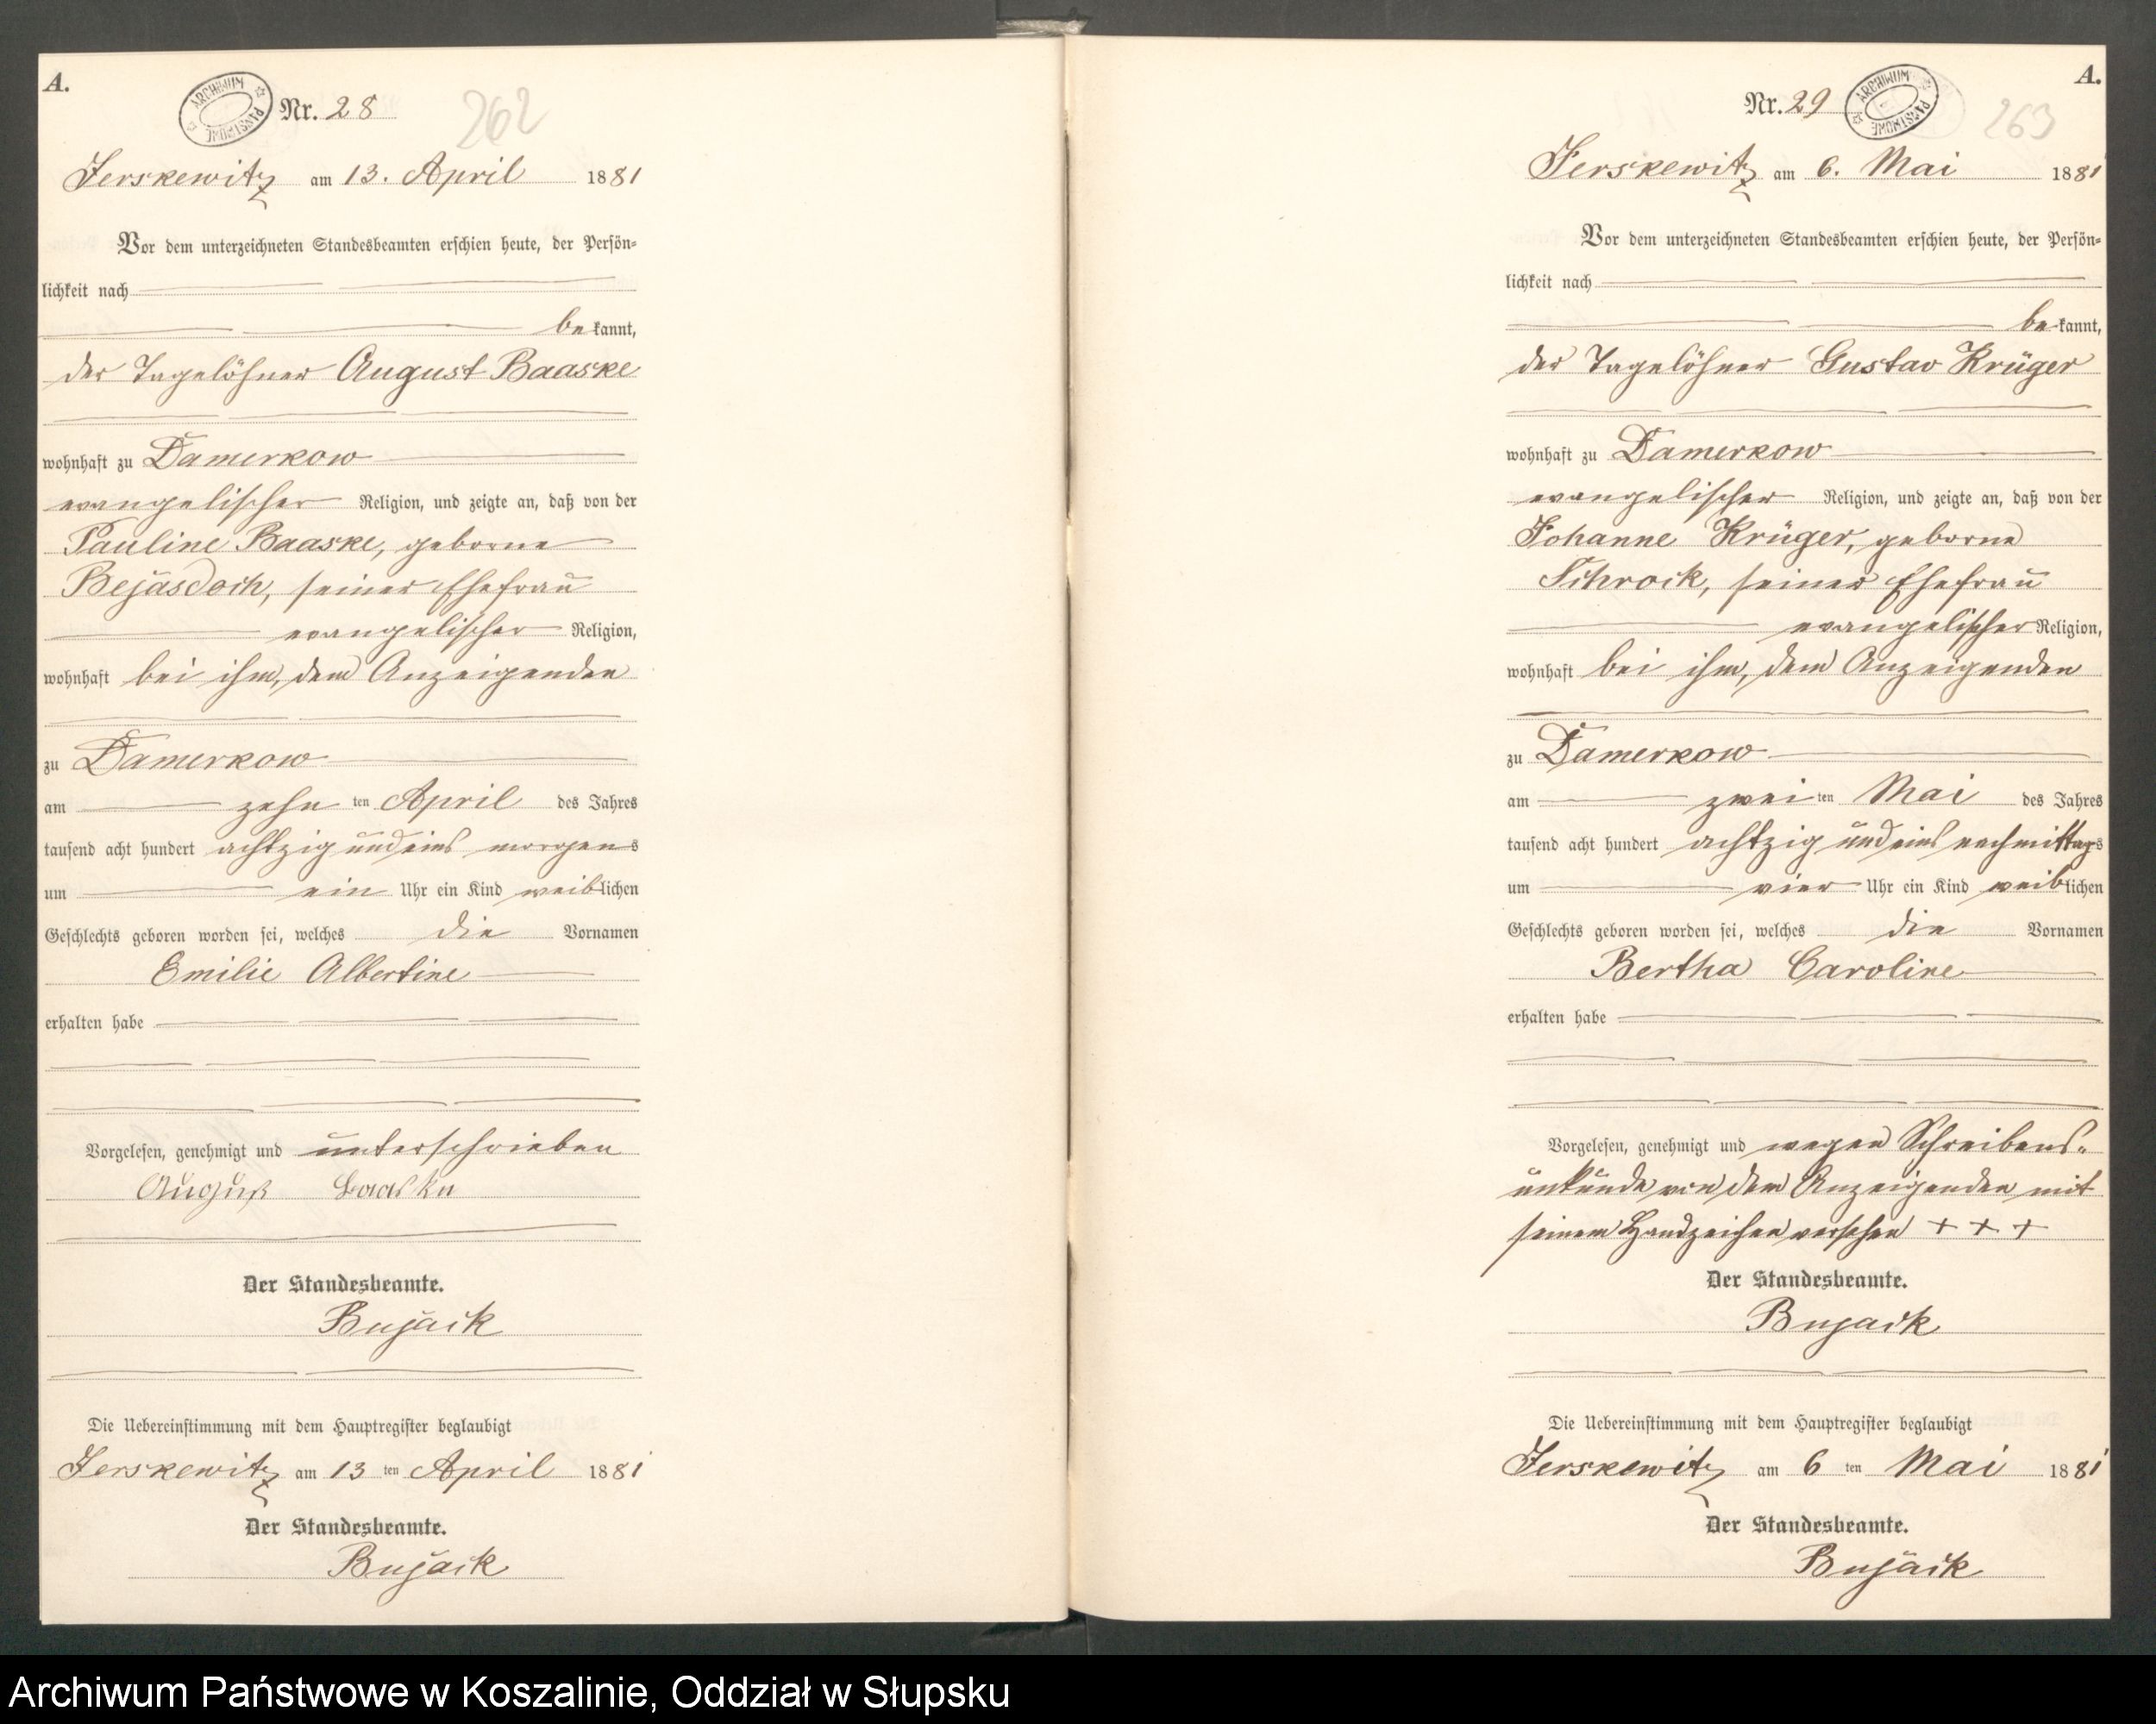 A.
ARCHIWUM PAŃSTWOWE
Nr. 28
262
Jerskewitz am 13. April 1881
Vor dem unterzeichneten Standesbeamten erschien heute, der Persön-
lichkeit nach
bekannt,
der Tagelöhner August Baaske
wohnhaft zu Damerkow
evangelischer Religion, und zeigte an, daß von der
Pauline Baaske, geborne
Bejasdoch, seiner Ehefrau
evangelischer Religion,
wohnhaft bei ihm, dem Anzeigenden
zu Damerkow
am zehn ten April des Jahres
tausend acht hundert achtzig und eins morgens
um ein Uhr ein Kind weiblichen
Geschlechts geboren worden sei, welches die Vornamen
Emilie Albertine
erhalten habe
Vorgelesen, genehmigt und unterschrieben
August Baaske
Der Standesbeamte.
Bujack
Die Uebereinstimmung mit dem Hauptregister beglaubigt
Jerskewitz am 13 ten April 1881
Der Standesbeamte.
Bujack
A.
Nr. 29
ARCHIWUM PAŃSTWOWE
263
Jerskewitz am 6. Mai 1881
Vor dem unterzeichneten Standesbeamten erschien heute, der Persön-
lichkeit nach
bekannt,
der Tagelöhner Gustav Krüger
wohnhaft zu Damerkow
evangelischer Religion, und zeigte an, daß von der
Johanne Krüger, geborne
Schrock, seiner Ehefrau
evangelischer Religion,
wohnhaft bei ihm, dem Anzeigenden
zu Damerkow
am zwei ten Mai des Jahres
tausend acht hundert achtzig und eins nachmittags
um vier Uhr ein Kind weiblichen
Geschlechts geboren worden sei, welches die Vornamen
Bertha Caroline
erhalten habe
Vorgelesen, genehmigt und wegen Schreibens-
unkunde von dem Anzeigenden mit
seinem Handzeichen versehen + + +
Der Standesbeamte.
Bujack
Die Uebereinstimmung mit dem Hauptregister beglaubigt
Jerskewitz am 6 ten Mai 1881
Der Standesbeamte.
Bujack
Archiwum Państwowe w Koszalinie, Oddział w Słupsku